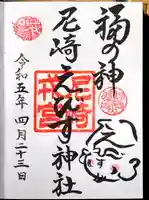 福の神
尼崎えびす神社
令和五年四月二十三日
尼崎
戎宮
えびす